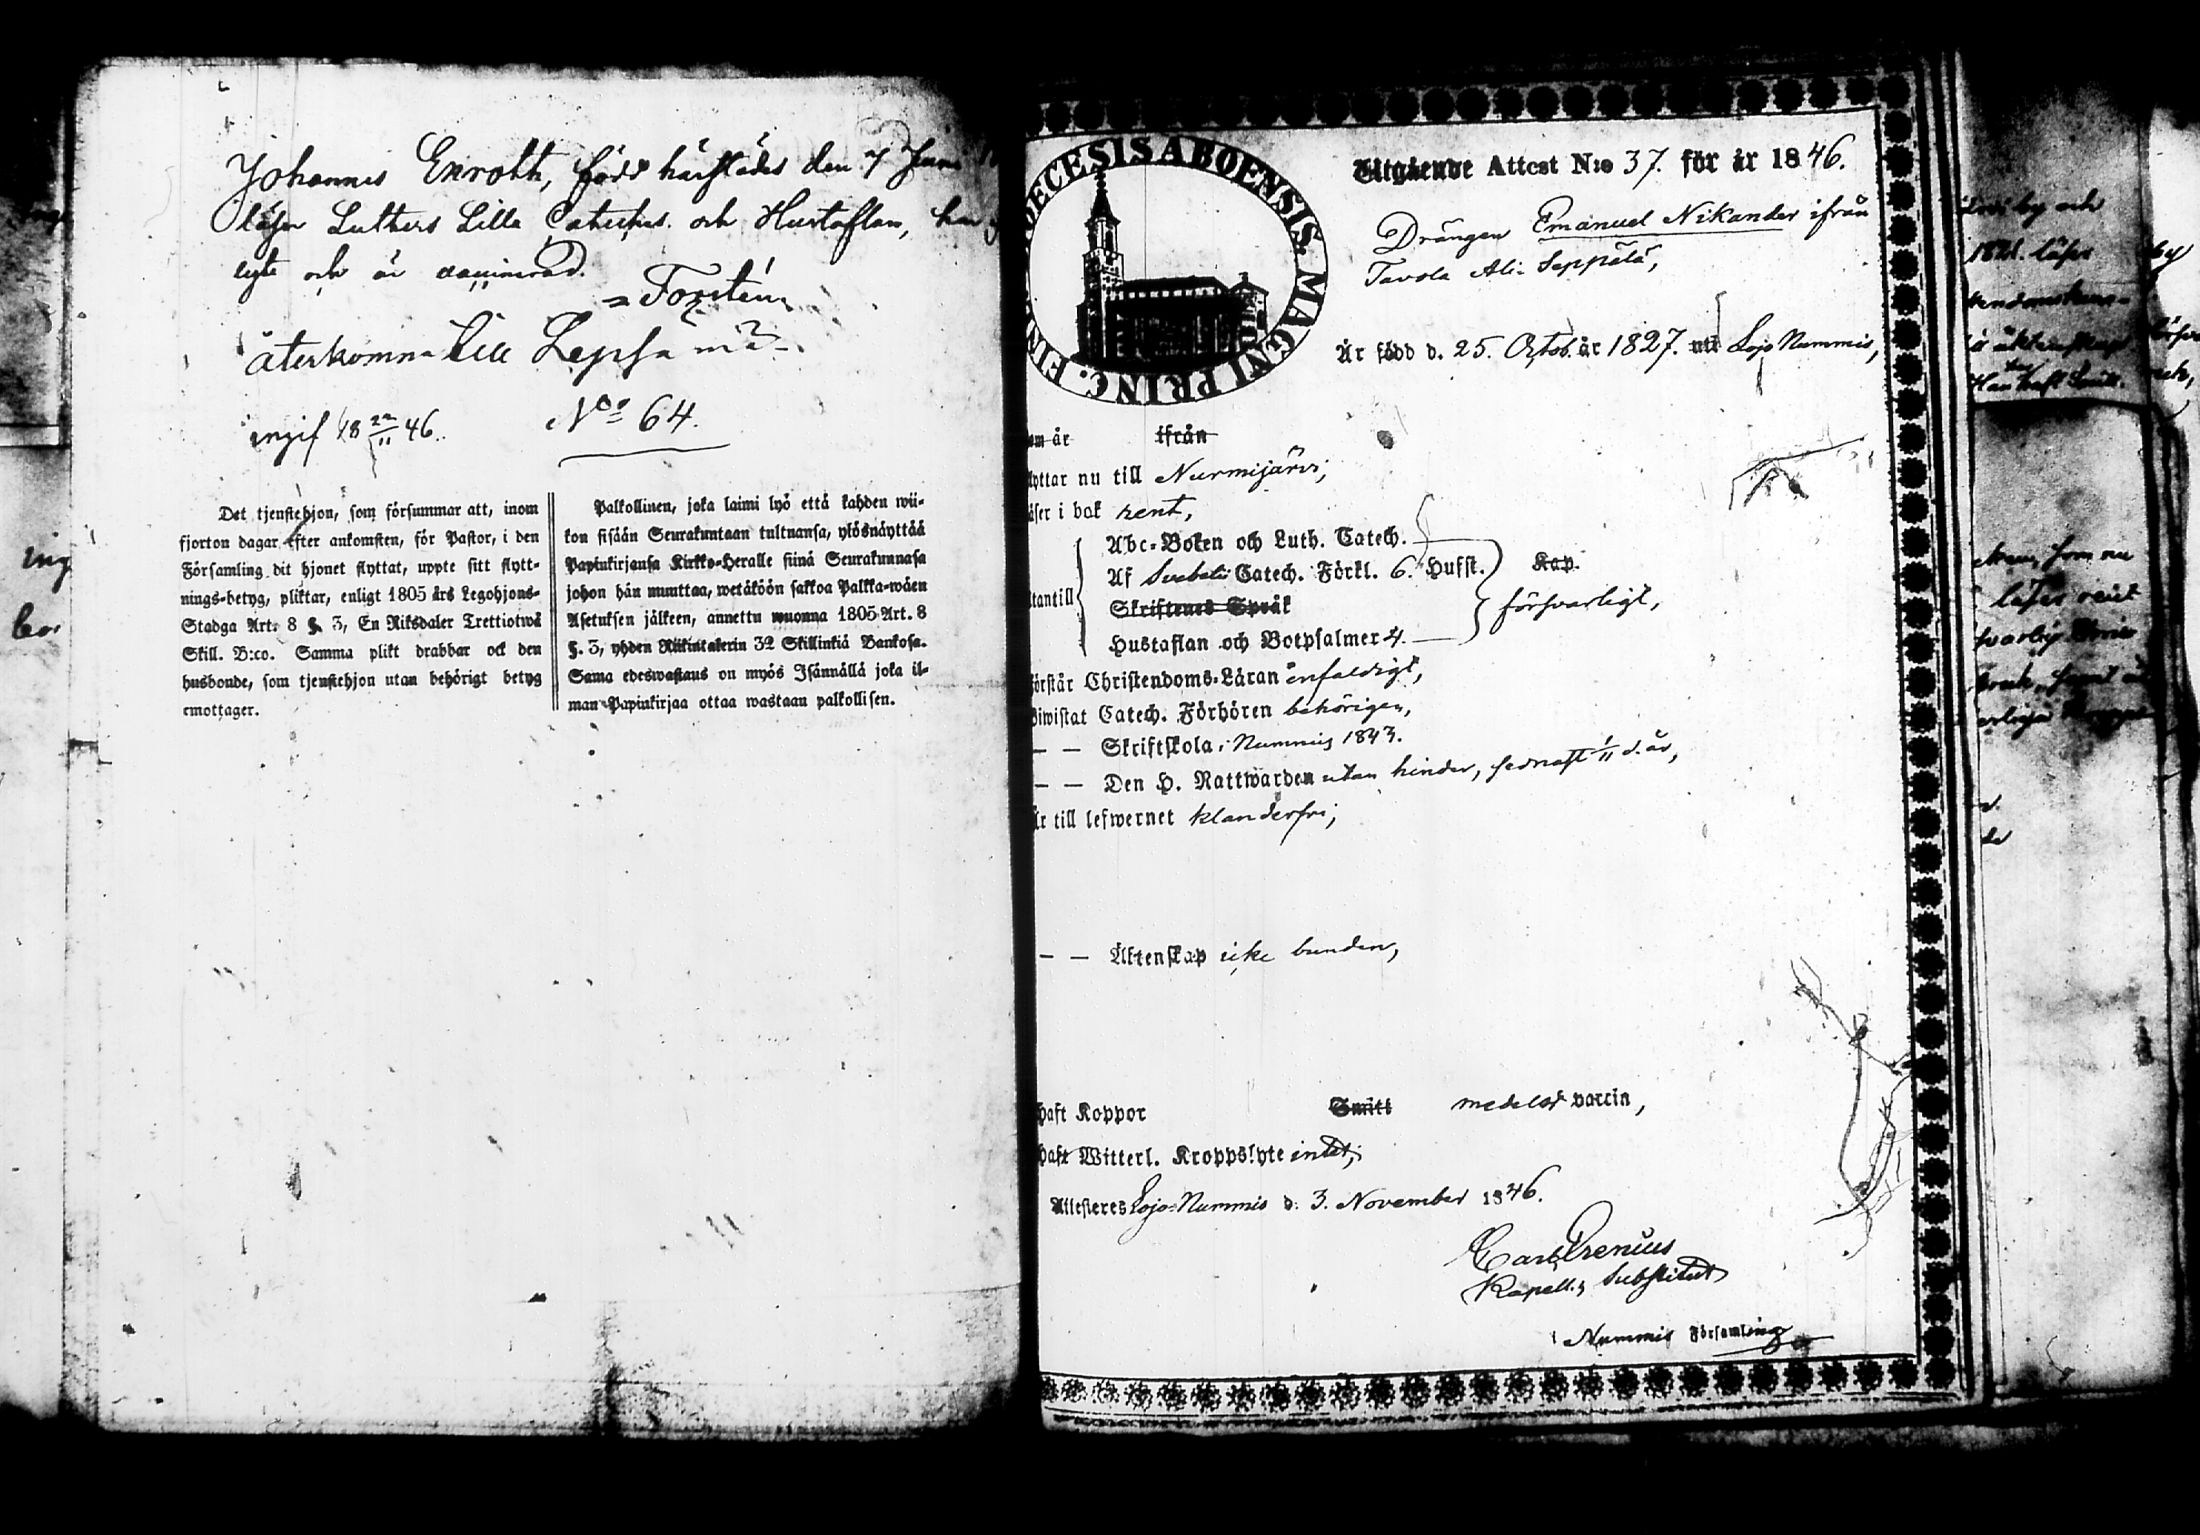 Johannes Enroth, född härstädes den 7 Juni
läser Luthers Lilla Cateches. och Hustaflan, har
lyte och är vaccinerad.
= Forstén
återkomma till Lepsämä
ingif 18 22/11 46.
No: 64.
Det tjenstehjon, som försummar att, inom
fjorton dagar efter ankomsten, för Pastor, i den
Församling dit hjonet flyttat, uppte sitt flytt-
nings-betyg, pliktar, enligt 1805 års Legohjons-
Stadga Art. 8 §. 3, En Riksdaler Trettiotwå
Skill. B:co. Samma plikt drabbar ock den
husbonde, som tjenstehjon utan behörigt betyg
emottager.
Palkollinen, joka laimi lyö että kahden wii-
kon sisään Seurakuntaan tultuansa, ylösnäyttää
Papinkirjansa Kirkko-Heralle siinä Seurakunnasa
johon hän muuttaa, wetäköön sakkoa Palkka-wäen
Asetuksen jälkeen, annettu wuonna 1805 Art. 8
§. 3, yhden Riikintalerin 32 Skillinkiä Bankosa.
Sama edeswastaus on myös Isännällä joka il-
man Papinkirjaa ottaa wastaan palkollisen.
DECESIS ABOENSIS. MAGNI PRINC. FIN
Utgående Attest N:o 37. för år 1846.
Drängen Emanuel Nikander ifrån
Tavola Ali-Seppälä,
Är född d. 25. Octob. år 1827. uti Lojo Nummis,
om år ifrån
lyttar nu till Nurmijärvi,
äser i bok rent,
tantill
Abc-Boken och Luth. Catech.
Af Svebeli Catech. Förkl. 6. Husst.
Kap.
Skriftenes Språk
försvarligt,
Hustaflan och Botpsalmer 4.
örstår Christendoms-Läran enfaldigt,
biwistat Catech. Förhören behörigen,
— — Skriftskola i Nummis 1843.
— — Den H. Nattwarden utan hinder, sednast 1/11 d. år,
Är till lefwernet klanderfri,
— — Äktenskap icke bunden,
haft Koppor Smitt medelst vaccin,
haft Witterl. Kroppslyte intet,
Attesteres Lojo-Nummis d. 3. November 1846.
Carl Grenius
Kapell. Substitut
i Nummis Församling